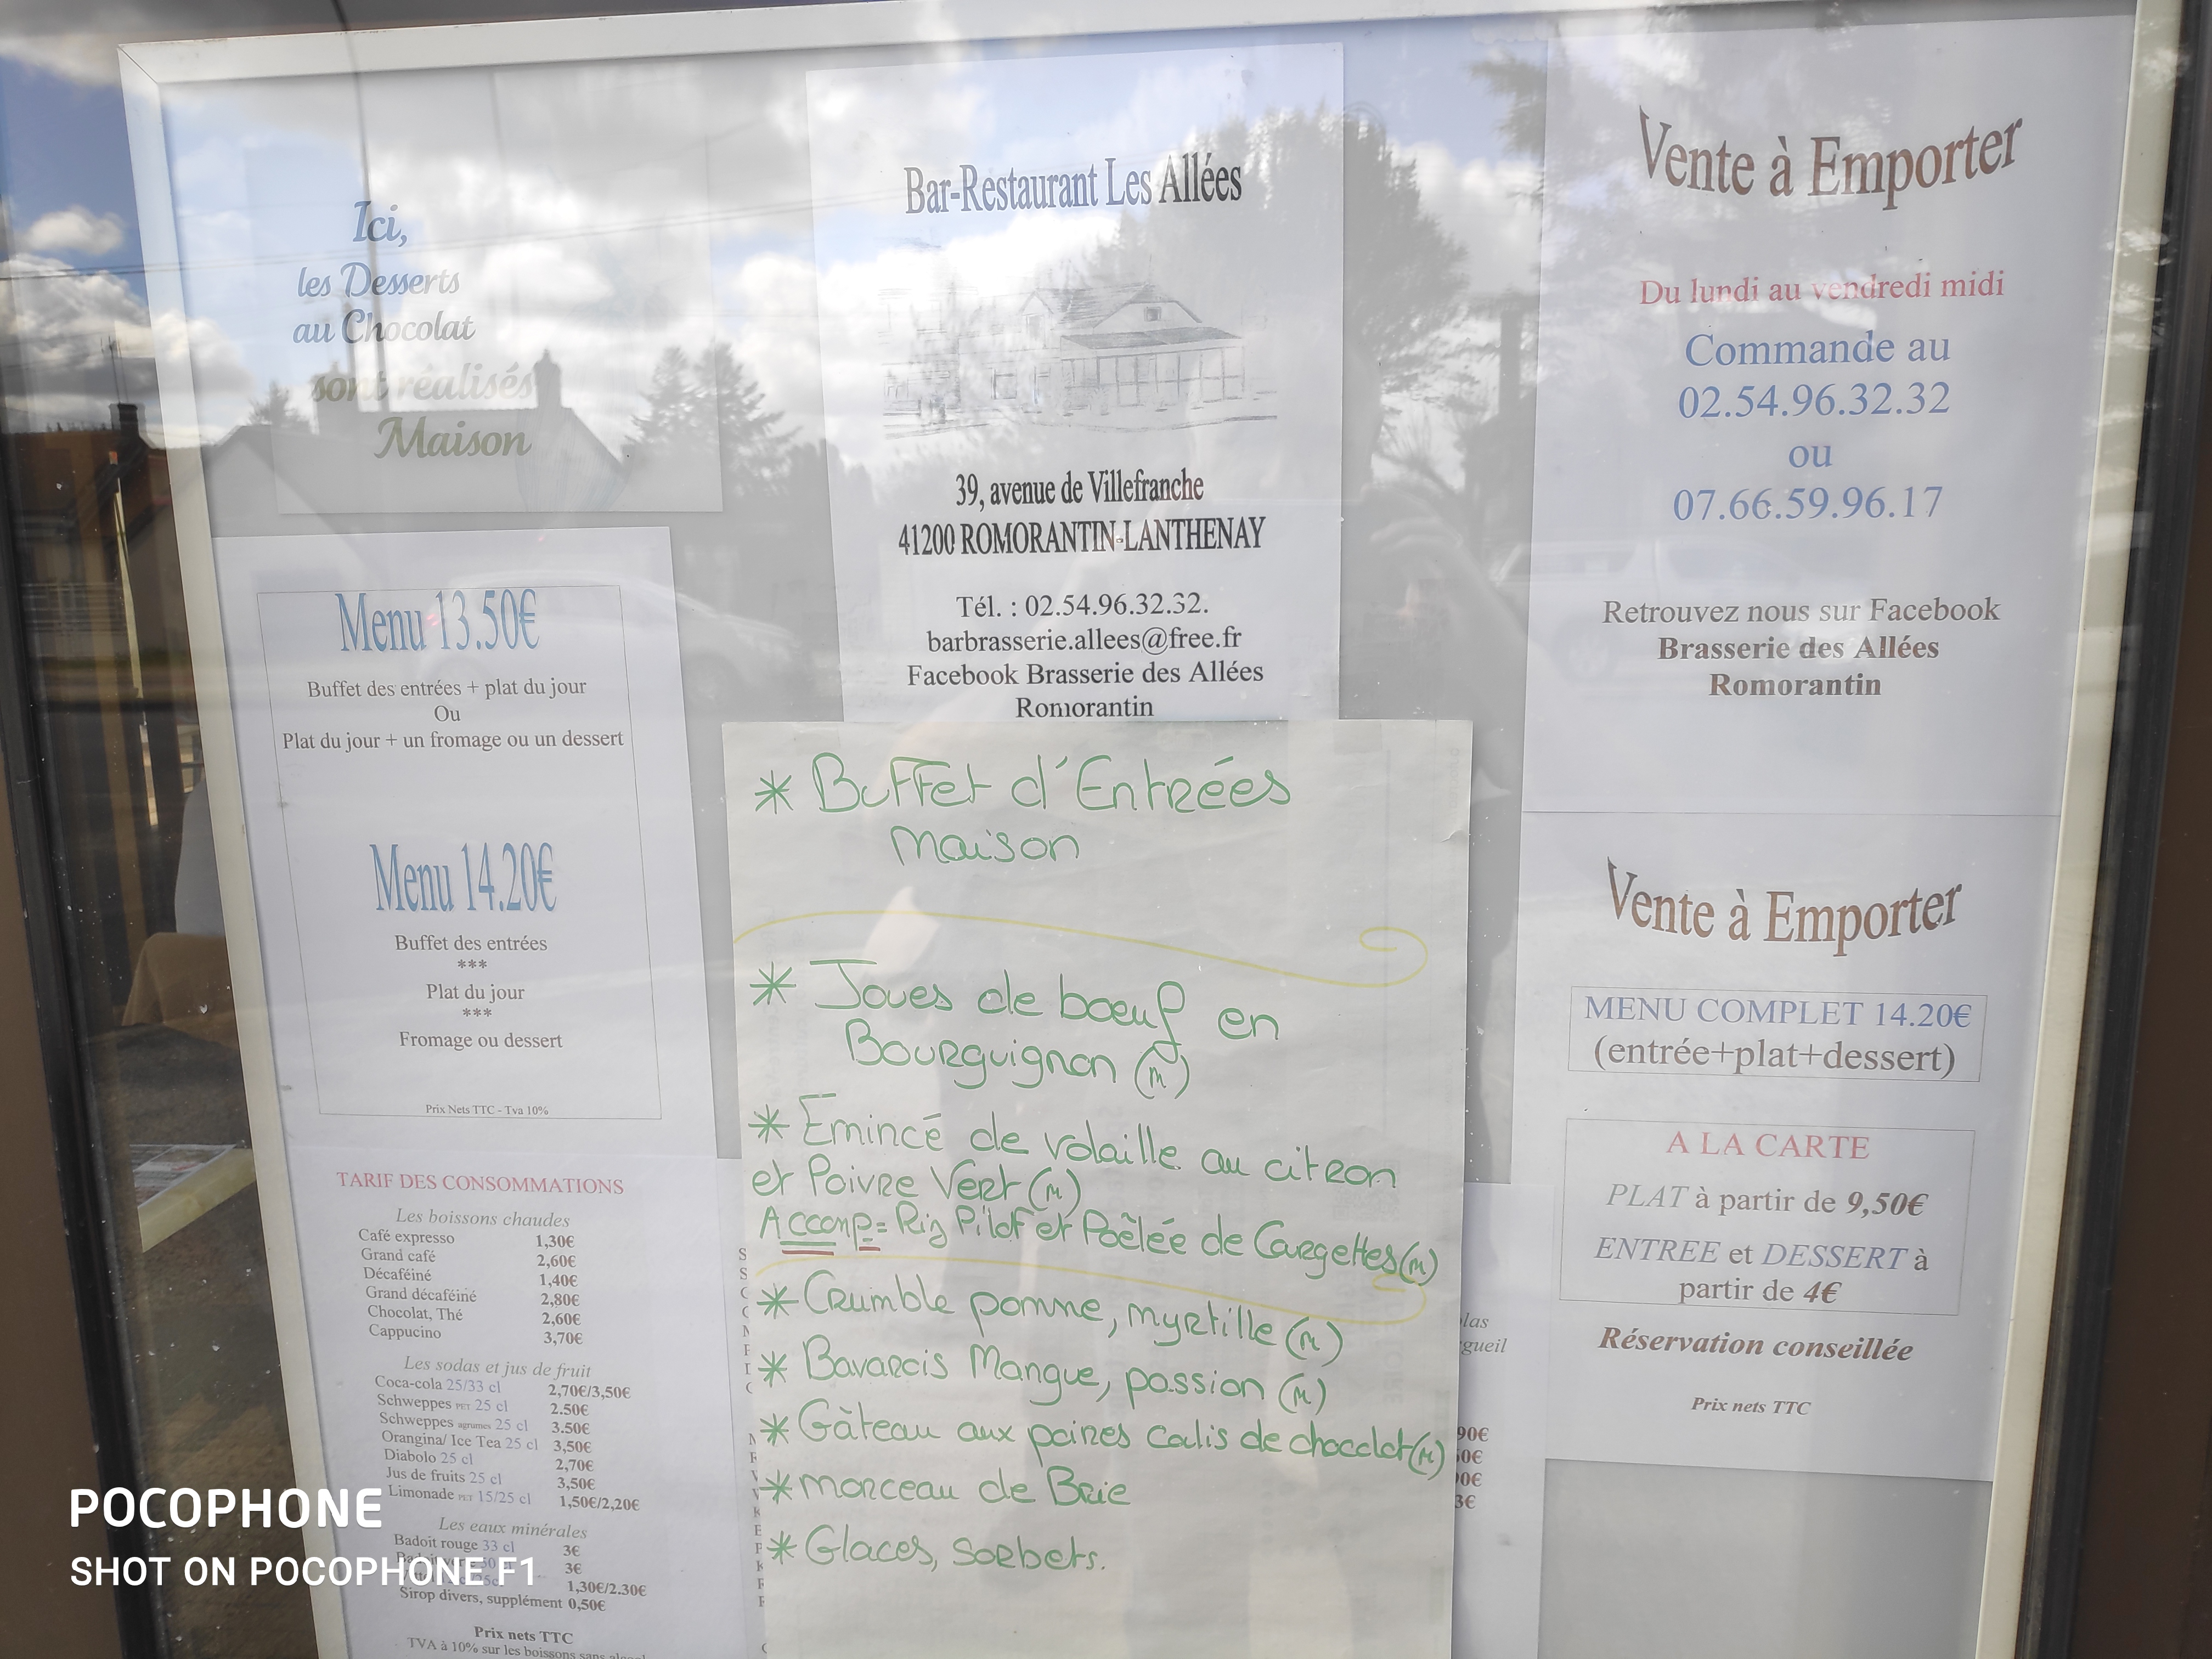 Ici,
les Desserts
au Chocolat
sont réalisés
Maison
Menu 13.50€
Buffet des entrées + plat du jour
Ou
Plat du jour + un fromage ou un dessert
Menu 14.20€
Buffet des entrées
***
Plat du jour
***
Fromage ou dessert
Prix Nets TTC - Tva 10%
TARIF DES CONSOMMATIONS
Les boissons chaudes
Café expresso 1,30€
Grand café 2,60€
Décaféiné 1,40€
Grand décaféiné 2,80€
Chocolat, Thé 2,60€
Cappucino 3,70€
Les sodas et jus de fruit
Coca-cola 25/33 cl 2,70€/3,50€
Schweppes PET 25 cl 2.50€
Schweppes agrumes 25 cl 3.50€
Orangina/ Ice Tea 25 cl 3,50€
Diabolo 25 cl 2,70€
Jus de fruits 25 cl 3,50€
Limonade PET 15/25 cl 1,50€/2,20€
Les eaux minérales
Badoit rouge 33 cl 3€
3€
1,30€/2.30€
Sirop divers, supplément 0,50€
Prix nets TTC
TVA à 10% sur les boissons sans
Bar-Restaurant Les Allées
39, avenue de Villefranche
41200 ROMORANTIN-LANTHENAY
Tél. : 02.54.96.32.32.
barbrasserie.allees@free.fr
Facebook Brasserie des Allées
Romorantin
* Buffet d'Entrées
Maison
* Joues de boeuf en
Bourguignon (m)
* Emincé de volaille au citron
et Poivre Vert (m)
Accomp = Riz Pilaf et Poêlée de Courgettes (m)
* Crumble pomme, myrtille (m)
* Bavarois Mangue, passion (m)
* Gâteau aux poires coulis de chocolat (m)
* morceau de Brie
* Glaces, sorbets.
Vente à Emporter
Du lundi au vendredi midi
Commande au
02.54.96.32.32
ou
07.66.59.96.17
Retrouvez nous sur Facebook
Brasserie des Allées
Romorantin
Vente à Emporter
MENU COMPLET 14.20€
(entrée+plat+dessert)
A LA CARTE
PLAT à partir de 9,50€
ENTREE et DESSERT à
partir de 4€
Réservation conseillée
Prix nets TTC
POCOPHONE
SHOT ON POCOPHONE F1